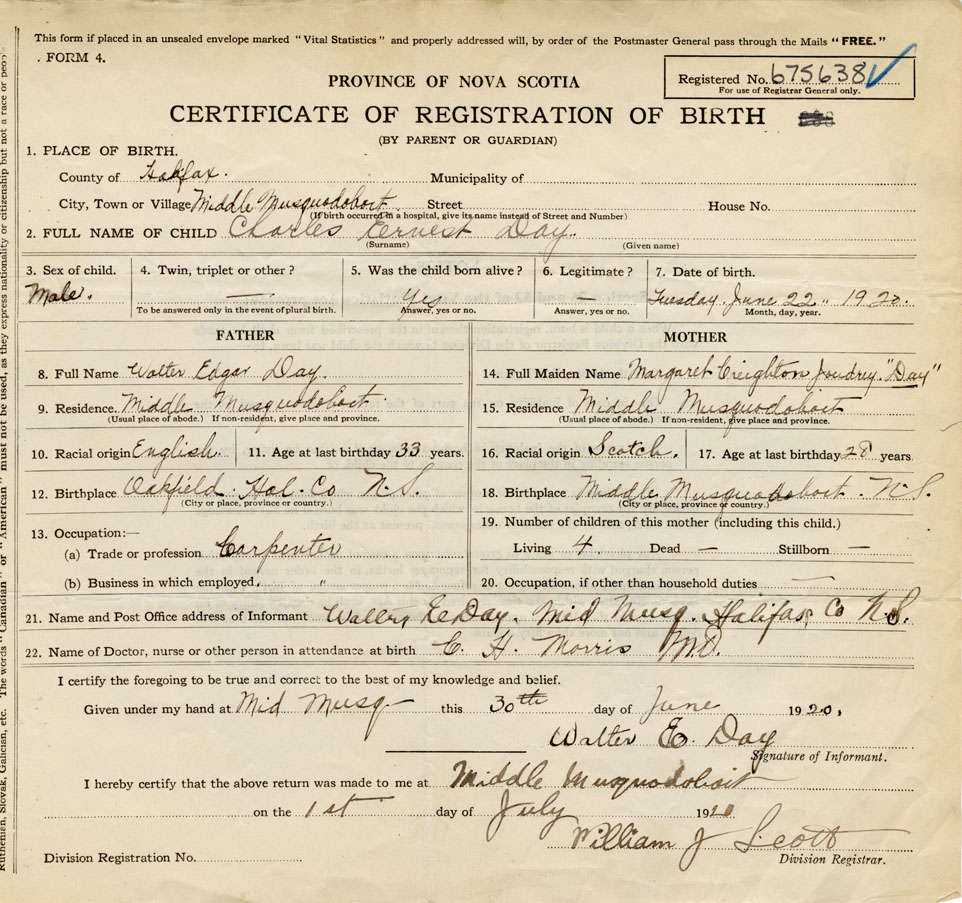 This form if placed in an unsealed envelope marked "Vital Statistics" and properly addressed will, by order of the Postmaster General pass through the Mails "FREE."
. FORM 4.
Registered No. 675638 ✓
For use of Registrar General only.
PROVINCE OF NOVA SCOTIA
CERTIFICATE OF REGISTRATION OF BIRTH
(BY PARENT OR GUARDIAN)
1. PLACE OF BIRTH.
County of Halifax. Municipality of
City, Town or Village Middle Musquodoboit Street House No.
(If birth occurred in a hospital, give its name instead of Street and Number)
2. FULL NAME OF CHILD Charles Ernest Day.
(Surname) (Given name)
3. Sex of child. 4. Twin, triplet or other? 5. Was the child born alive? 6. Legitimate? 7. Date of birth.
Male. — Yes — Tuesday June 22 1920.
To be answered only in the event of plural birth. Answer, yes or no. Answer, yes or no. Month, day, year.
FATHER
8. Full Name Walter Edgar Day.
9. Residence Middle Musquodoboit.
(Usual place of abode.) If non-resident, give place and province.
10. Racial origin English. 11. Age at last birthday 33 years.
12. Birthplace Oakfield Hal. Co N.S.
(City or place, province or country.)
13. Occupation:—
(a) Trade or profession Carpenter
(b) Business in which employed. "
MOTHER
14. Full Maiden Name Margaret Creighton Joudrey. "Day"
15. Residence Middle Musquodoboit
(Usual place of abode.) If non-resident, give place and province.
16. Racial origin Scotch. 17. Age at last birthday 28 years
18. Birthplace Middle Musquodoboit. N.S.
(City or place, province or country.)
19. Number of children of this mother (including this child.)
Living 4. Dead — Stillborn —
20. Occupation, if other than household duties —
21. Name and Post Office address of Informant Walter E Day. Mid Musq. Halifax Co N.S.
22. Name of Doctor, nurse or other person in attendance at birth C. H. Morris M.D.
I certify the foregoing to be true and correct to the best of my knowledge and belief.
Given under my hand at Mid Musq this 30th day of June 1920.
Walter E. Day
Signature of Informant.
I hereby certify that the above return was made to me at Middle Musquodoboit
on the 1st day of July 1920
William J Scott
Division Registration No. Division Registrar.
Ruthenian, Slovak, Galician, etc. The words "Canadian" or "American" must not be used, as they express nationality or citizenship but not a race or peop